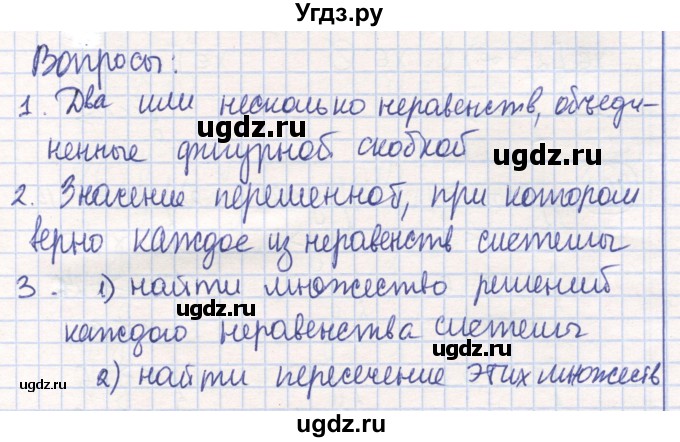 Угдз.ру
Вопросы:
1. Два или несколько неравенств, объеди-
ugdz.ru
ugdz.ru
ненные фигурной скобкой
2. Значение переменной, при котором
верно каждое из неравенств системы
3. 1) найти множество решений
ugdz.ru
ugdz.ru
каждого неравенства системы
ugdz.ru
ugdz.ru
2) найти пересечение этих множеств
ugdz.ru
ugdz.ru